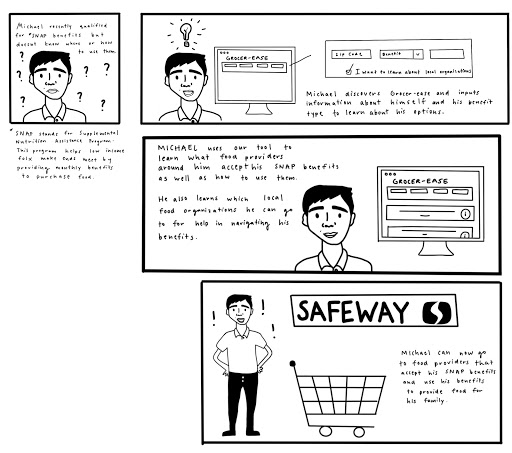 Michael recently qualified
for *SNAP benefits but
doesnt know where or how
to use them.
? ? ? ? ? ?
*SNAP stands for Supplemental
Nutrition Assistance Program.
This program helps low income
folx make ends meet by
providing monthly benefits
to purchase food.
GROCER-EASE
Zip Code Benefit
I want to learn about local organizations
Michael discovers Grocer-ease and inputs
information about himself and his benefit
type to learn about his options.
MICHAEL uses our tool to
learn what food providers
around him accept his SNAP benefits
as well as how to use them.
He also learns which local
food organizations he can go
to for help in navigating his
benefits.
GROCER-EASE
i
i
! ! ! !
SAFEWAY
Michael can now go
to food providers that
accept his SNAP benefits
and use his benefits
to provide food for
his family.